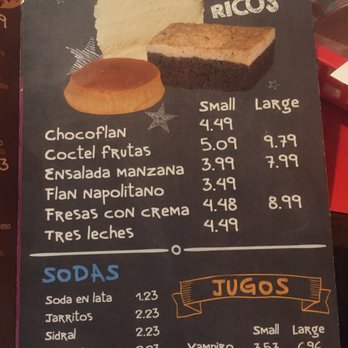 RICOS
Small Large
Chocoflan 4.49
Coctel frutas 5.09 9.79
Ensalada manzana 3.99 7.99
Flan napolitano 3.49
Fresas con crema 4.48 8.99
Tres leches 4.49
SODAS
Soda en lata 1.23
Jarritos 2.23
Sidral 2.23
JUGOS
Small Large
Vampiro 3.53 6.96